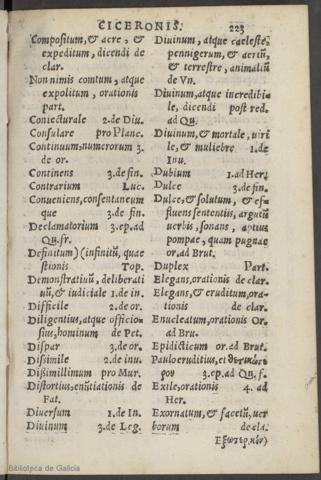 CICERONIS. 223
Compositum, & acre, &
expeditum, dicendi de
clar.
Non nimis comtum, atque
expolitum, orationis
part.
Coniecturale 2.de Diu.
Consulare pro Planc.
Continuum, numerorum 3.
de or.
Continens 3.de fin.
Contrarium Luc.
Conueniens, consentaneum
que 3.de fin.
Declamatorium 3.ep.ad
Qu.fr.
Definitum) (infinitũ, quæ
stionis Top.
Demonstratiuũ, deliberati
uũ, & iudiciale 1.de in.
Difficile 2.de or.
Diligentius, atque officio-
sius, hominum de Pet.
Dispar 3.de or.
Dissimile 2.de inu.
Dissimillimum pro Mur.
Distortius, enũtiationis de
Fat.
Diuersum 1.de In.
Diuinum 3.de Leg.
Diuinum, atque cæleste,
pennigerum, & aeriũ,
& terrestre, animaliũ
de Vn.
Diuinum, atque incredibi-
le, dicendi post red.
ad Qu.
Diuinum, & mortale, uiri
le, & muliebre 1.de
Inu.
Dubium 1.ad Her.
Dulce 3.de fin.
Dulce, & solutum, & ef-
fluens sententiis, argutũ
uerbis, sonans, aptius
pompæ, quam pugnæ
or.ad Brut.
Duplex Part.
Elegans, orationis de clar.
Elegans, & eruditum, ora-
tionis de clar.
Enucleatum, orationis Or.
ad Bru.
Epidicticum or.ad Brut.
Paulo eruditius, et
3.ep.ad Qu.f.
Exile, orationis 4. ad
Her.
Exornatum, & facetũ, uer
borum de cla.
Εξωτερικὸν)
Biblioteca de Galicia